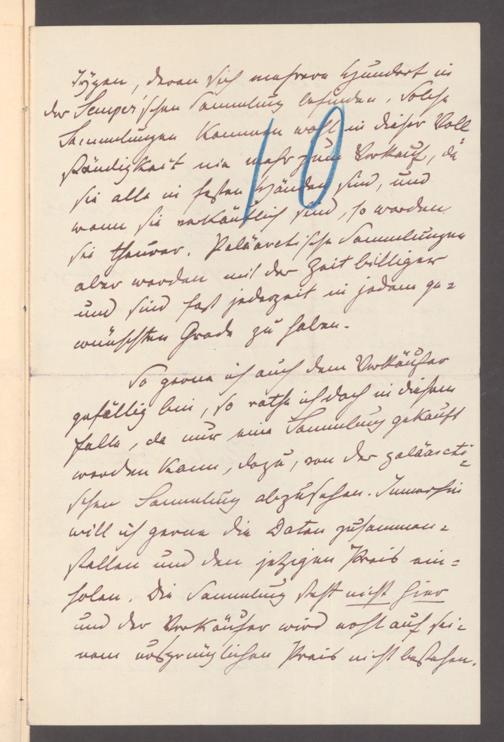 Typen, deren sich mehrere Hundert in
der Semper'schen Sammlung befinden. Solche
Sammlungen kommen wohl in dieser Voll
ständigkeit nie mehr zum Verkauf, da
sie alle in festen Händen sind, und
wenn sie verkäuflich sind, so werden
sie theurer. Paläarctische Sammlungen
aber werden mit der Zeit billiger
und sind fast jederzeit in jedem ge=
wünschten Grade zu haben.
So gerne ich auch dem Verkäufer
gefällig bin, so rathe ich doch in diesem
Falle, da nur eine Sammlung gekauft
werden kann, dazu, von der paläarcti=
schen Sammlung abzusehen. Immerhin
will ich gerne die Daten zusammen=
stellen und den jetzigen Preis ein=
holen. Die Sammlung steht nicht hier
und der Verkäufer wird wohl auf sei=
nem ursprünglichen Preis nicht bestehen.
10